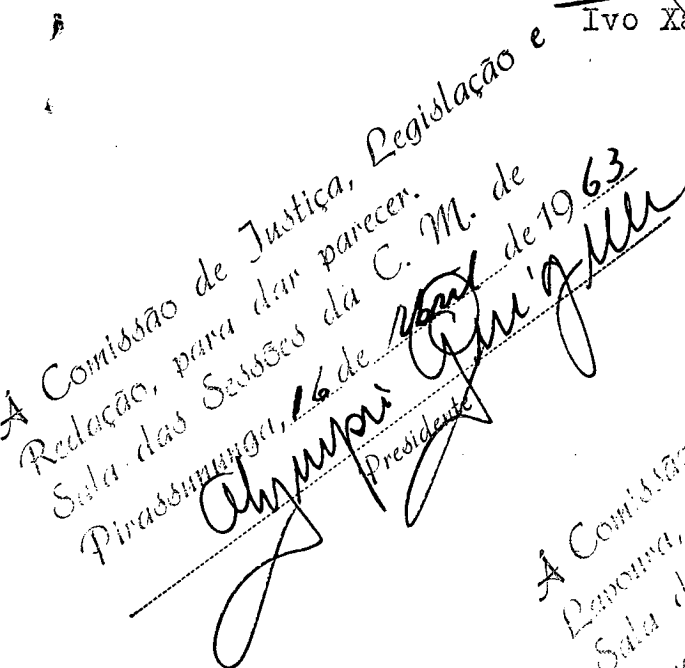 Ivo
À Comissão de Justiça, Legislação e
Redação, para dar parecer.
Sala das Sessões da C. M. de
Pirassununga, 16 de Abril de 1963
Presidente
À Comissão
Lavoura,
Sala